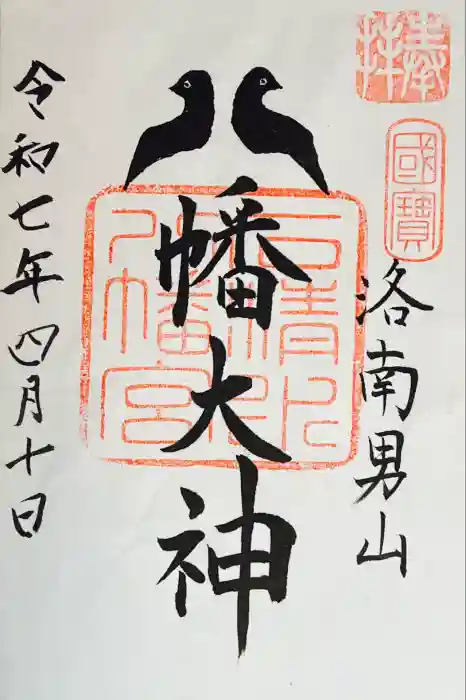 奉拝
國寶
洛南男山
八幡大神
石清水八幡宮
令和七年四月十日